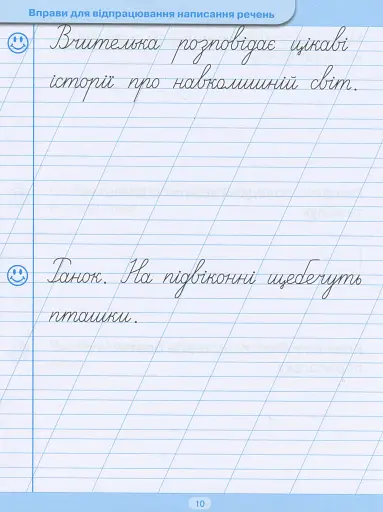 Вправи для відпрацювання написання речень
Вчителька розповідає цікаві
історії про навколишній світ.
Ранок. На підвіконні щебечуть
пташки.
10